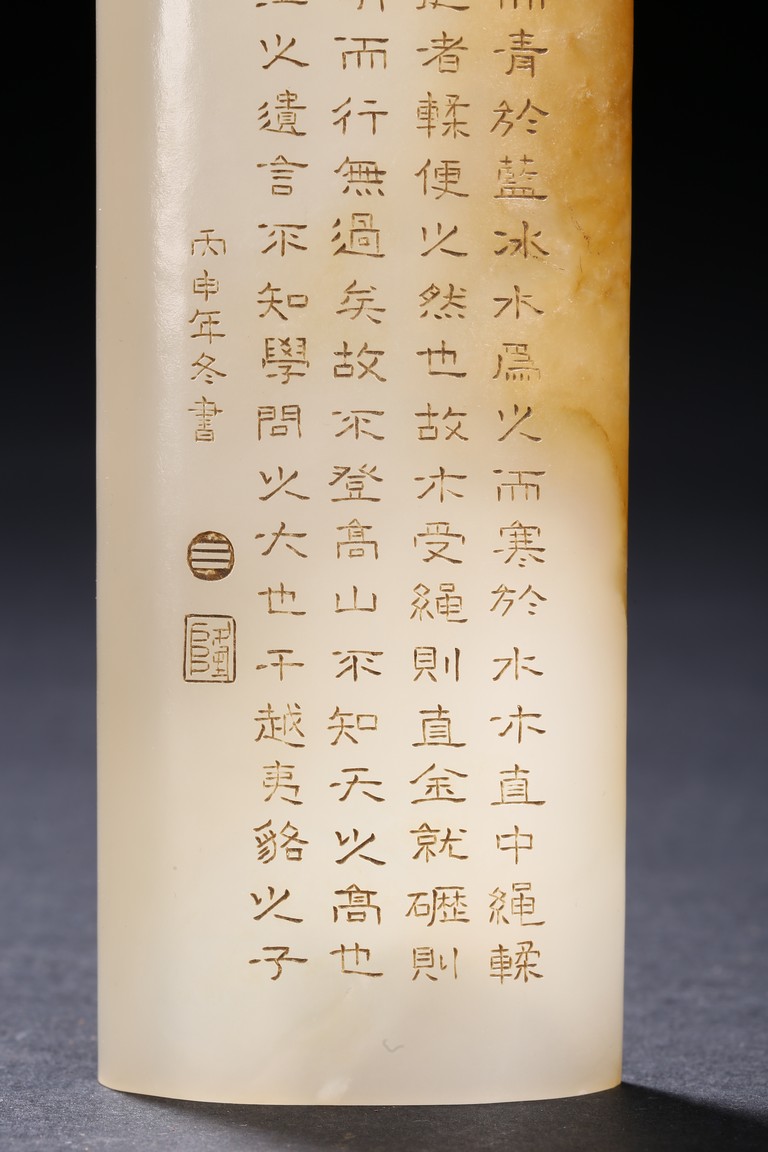 而青於藍冰水爲之而寒於水木直中繩輮
者輮使之然也故木受繩則直金就礪則
而行無過矣故不登高山不知天之高也
之遺言不知學問之大也干越夷貉之子
丙申年冬書
三